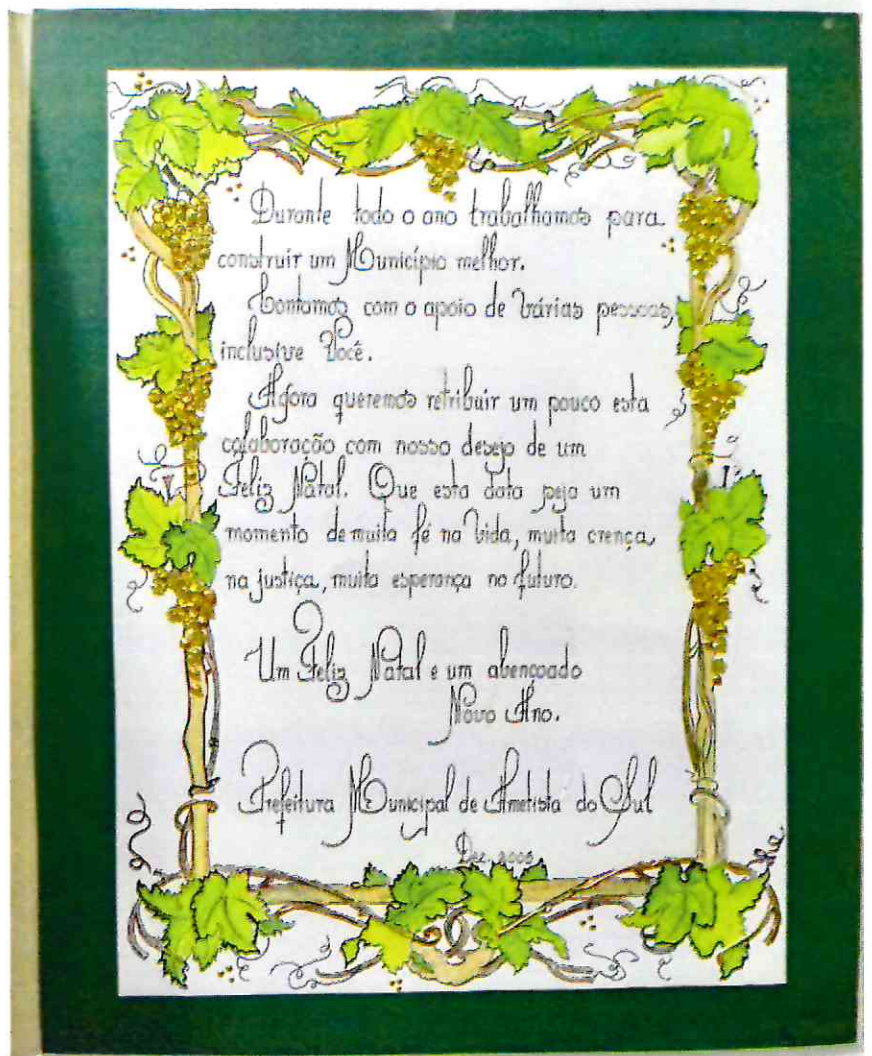 Durante todo o ano trabalhamos para
construir um Município melhor.
Contamos com o apoio de várias pessoas,
inclusive Você.
Agora queremos retribuir um pouco esta
colaboração com nosso desejo de um
Feliz Natal. Que esta data seja um
momento de muita fé na Vida, muita crença
na justiça, muita esperança no futuro.
Um Feliz Natal e um abençoado
Novo Ano.
Prefeitura Municipal de Ametista do Sul
Dez.